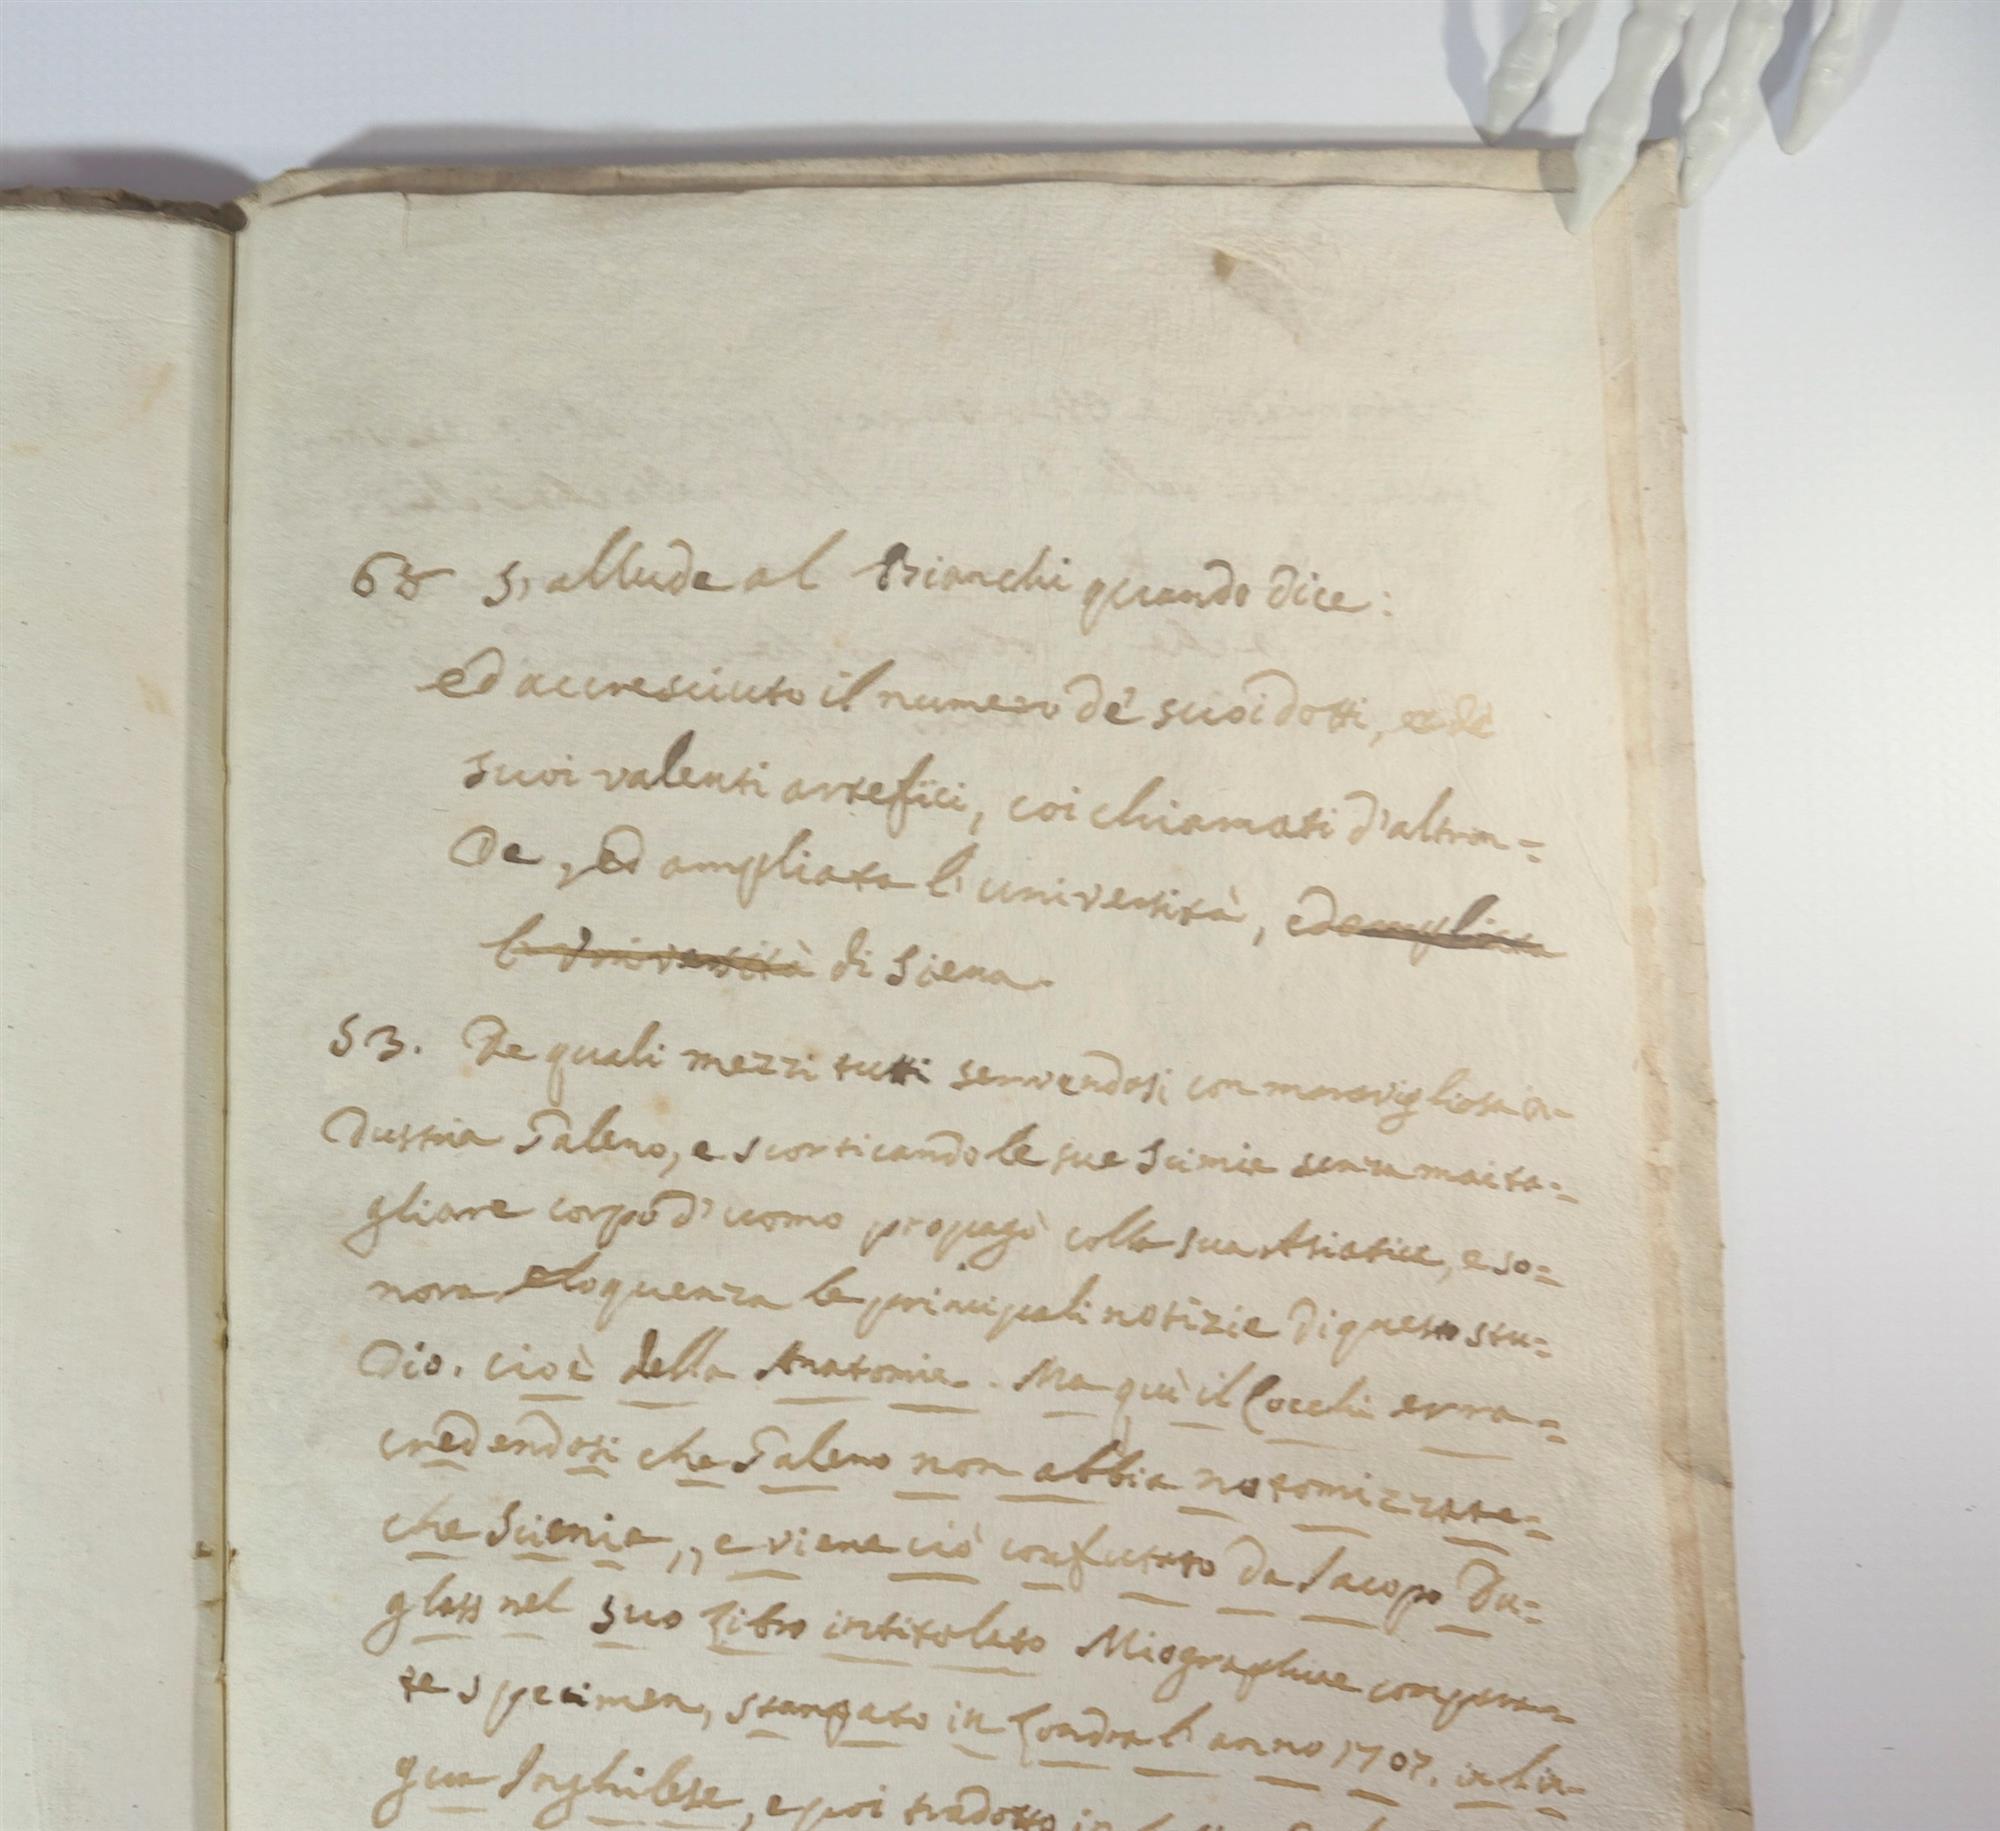 65 S'allude al Bianchi quando dice:
ed accresciuto il numero de' suoi dotti, e de'
suoi valenti artefici, coi chiamati d'altron=
de, ed ampliata l'università, ed ampliata
l'Università di Siena.
53. De quali mezzi tutti servendosi con maravigliosa in=
dustria Galeno, e scorticando le sue Scimie senza mai ta=
gliare corpo d'uomo propagò colla sua Asiatica, e so=
nora eloquenza le principali notizie di questo stu=
dio. cioè della Anatomia. Ma quì il Cocchi erra=
credendosi che Galeno non abbia notomizzate=
che Scimie,, e viene ciò confutato da Iacopo Du=
glass nel suo Libro intitolato Miographiae compara=
te specimen, stampato in Londra l'anno 1707. in lin=
gua Inghilese, e poi tradotto in